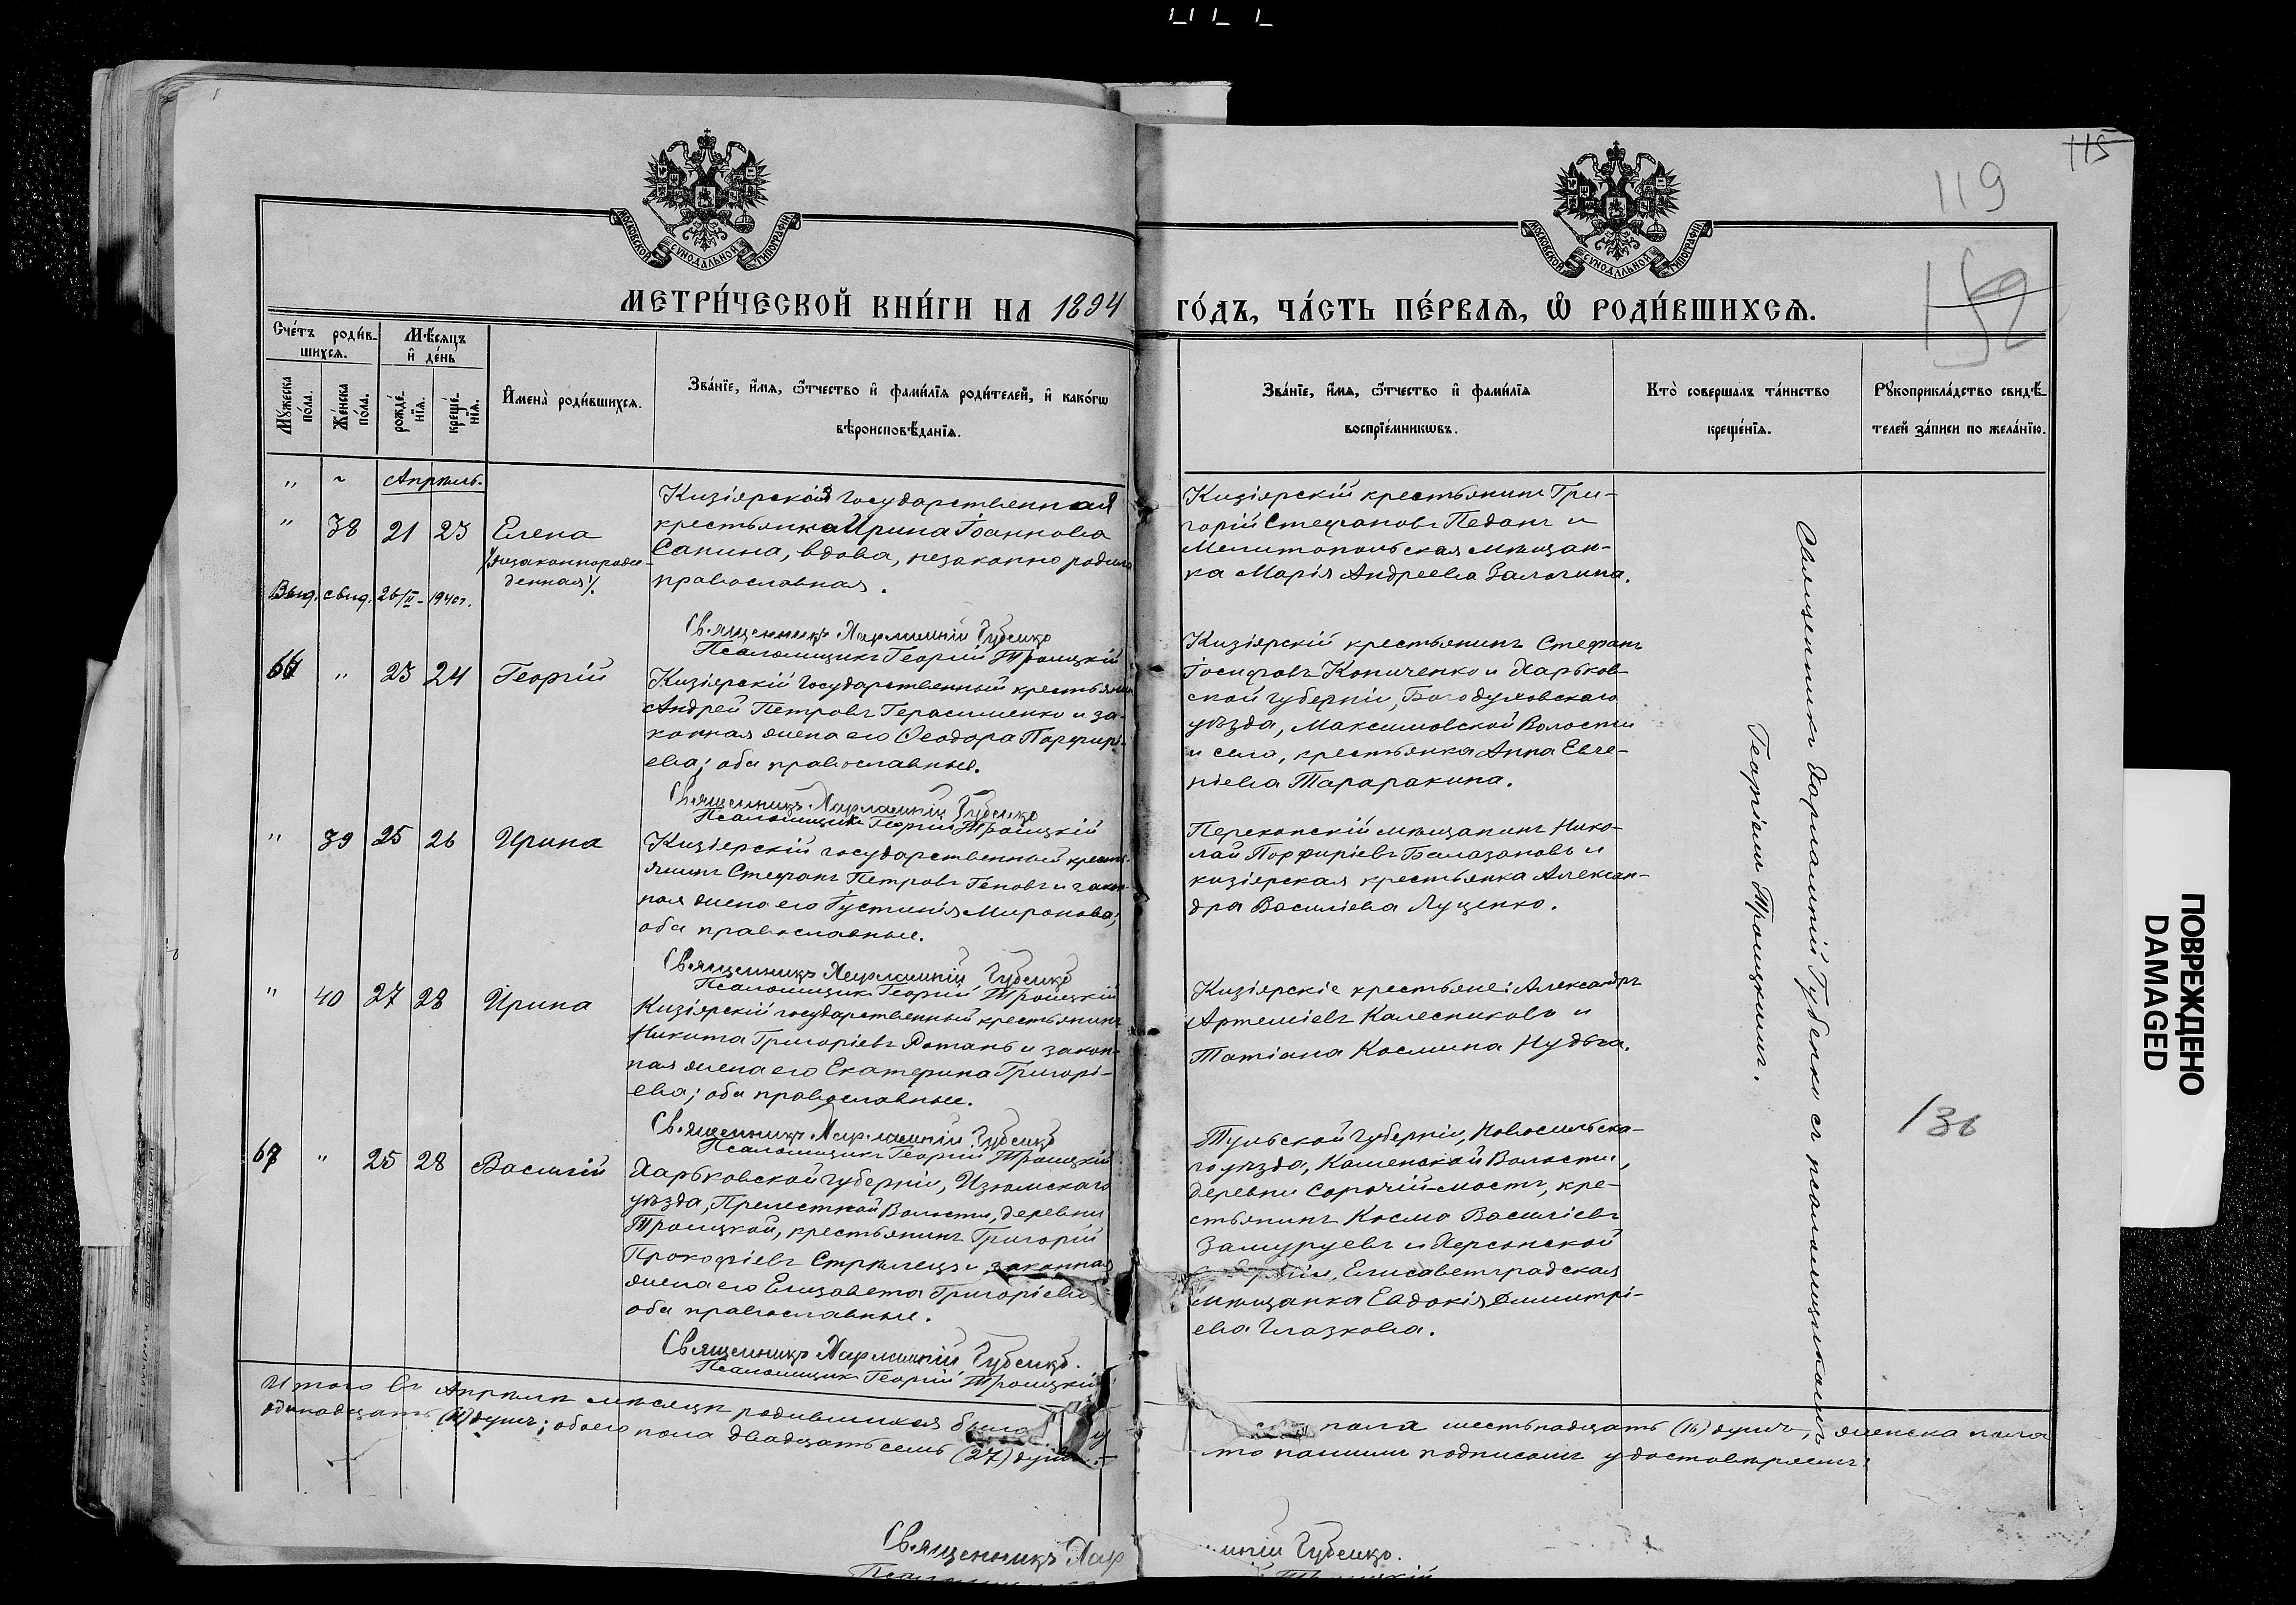 115
119
152
МОСКОВСКОЙ СѴНОДАЛЬНОЙ ТИПОГРАФІИ
МОСКОВСКОЙ СѴНОДАЛЬНОЙ ТИПОГРАФІИ
МЕТРИ́ЧЕСКОЙ КНИ́ГИ НА 1894
ГО́ДЪ, ЧА́СТЬ ПЕ́РВАѦ, Ѽ РОДИ́ВШИХСѦ.
Сче́тъ роди́в-
шихсѧ.
Мѣ́сѧцъ
и҆ де́нь
Мꙋ́жеска
по́ла.
Же́нска
по́ла.
рожде́-
нїѧ.
креще́-
нїѧ.
И҆мена̀ роди́вшихсѧ.
Зва́нїе, и҆́мѧ, ѻ҆́тчество и҆ фами́лїѧ роди́телей, и҆ како́гѡ
вѣроисповѣ́данїѧ.
Зва́нїе, и҆́мѧ, ѻ҆́тчество и҆ фами́лїѧ
воспрїе́мникѡвъ.
Кто̀ соверша́лъ та́инство
креще́нїѧ.
Рꙋкоприкла́дство свидѣ́-
телей за́писи по жела́нїю.
" " Апрѣль.
" 38 21 23 Елена
/незаконнорож-
денная/.
Выд. свид. 26/II - 1940г.
Кизіярская государственная
крестьянка Ирина Іоаннова
Сапина, вдова, незаконно родила
православная.
Священникъ Харлампій Губенко
Псаломщикъ Георгій Троицкій
Кизіярскій крестьянинъ Гри-
горій Стефановъ Педанъ и
Мелитопольская мѣщан-
ка Марія Андреева Залогина.
66 " 23 24 Георгій
Кизіярскій государственный крестьянинъ
Андрей Петровъ Герасименко и за-
конная жена его Ѳеодора Порфирі-
ева; оба православные.
Священникъ Харлампій Губенко
Псаломщикъ Георгій Троицкій
Кизіярскій крестьянинъ Стефанъ
Іосифовъ Копиченко и Харьков-
ской губерніи, Богодуховскаго
уѣзда, Максимовской Волости
и села, крестьянка Анна Евге-
ніева Тараракина.
" 39 25 26 Ирина
Кизіярскій государственный кресть-
янинъ Стефанъ Петровъ Геновъ и закон-
ная жена его Іустинія Миронова;
оба православные.
Священникъ Харлампій Губенко
Псаломщикъ Георгій Троицкій
Перекопскій мѣщанинъ Нико-
лай Порфиріевъ Балазановъ и
кизіярская крестьянка Алексан-
дра Василіева Луценко.
" 40 27 28 Ирина
Кизіярскій государственный крестьянинъ
Никита Григоріевъ Ротань и закон-
ная жена его Екатерина Григорі-
ева; оба православные.
Священникъ Харлампій Губенко
Псаломщикъ Георгій Троицкій
Кизіярскіе крестьяне: Александръ
Артеміевъ Калесниковъ и
Татіана Космина Нудьга.
67 " 25 28 Василій
Харьковской губерніи, Изюмскаго
уѣзда, Прелестной Волости, деревни
Троицкой, крестьянинъ Григорій
Прокофіевъ Стрѣлецъ и законная
жена его Елизавета Григоріева
оба православные.
Священникъ Харлампій Губенко.
Псаломщикъ Георгій Троицкій
Тульской губерніи, Новосильска-
го уѣзда, Каменской Волости,
деревни Сорочій-мостъ, кре-
стьянинъ Косма Василіевъ
Замуруевъ и Херсонской
Елисаветградская
мѣщанка Евдокія Димитрі-
ева Глазкова.
Священникъ Харлампій Губенко съ псаломщикомъ
Георгіемъ Троицкимъ.
136
Итого въ Апрѣлѣ мѣсяцѣ родившихся было
пола шестьнадцать (16) душъ, женска пола
одинадцать (11) душъ; обоего пола двадцать семь (27) душъ.
то нашимъ подписомъ удостовѣряемъ:
Священникъ Хар
мпій Губенко.
ПОВРЕЖДЕНО
DAMAGED